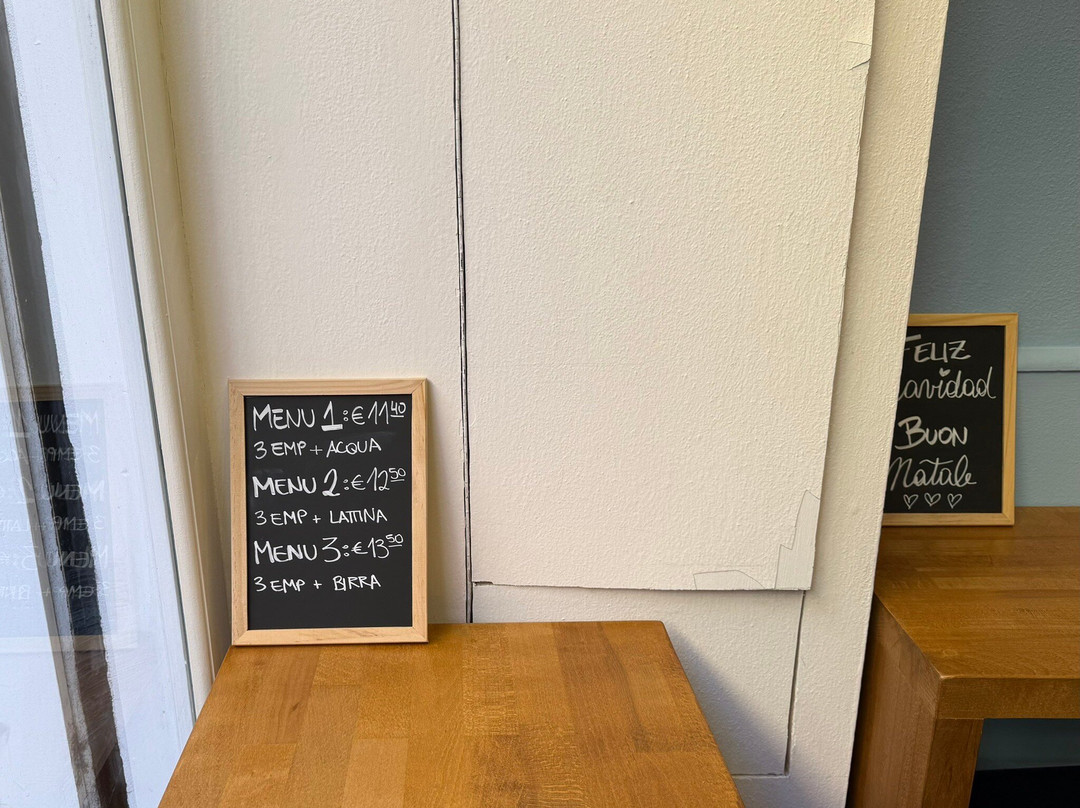 MENU 1: €11 40
3 EMP + ACQUA
MENU 2: €12 50
3 EMP + LATTINA
MENU 3: €13 50
3 EMP + BIRRA
FELIZ
navidad
BUON
Natale